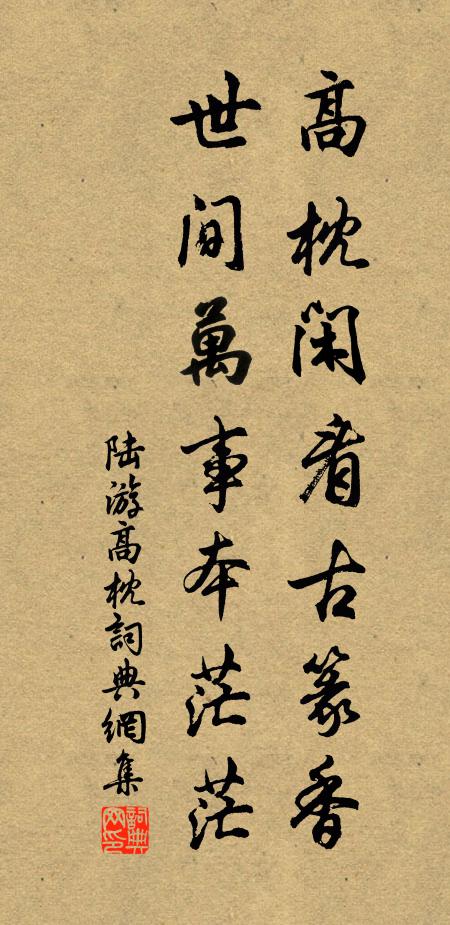 高枕閑看古篆香
世间萬事本茫茫
陆游高枕詞典網集
詞典网印